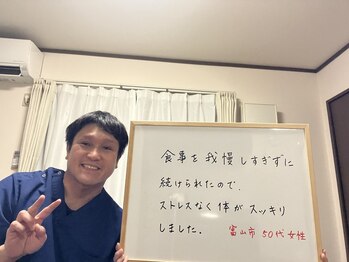 食事を我慢しすぎずに
続けられたので、
ストレスなく体がスッキリ
しました。 富山市 50代女性